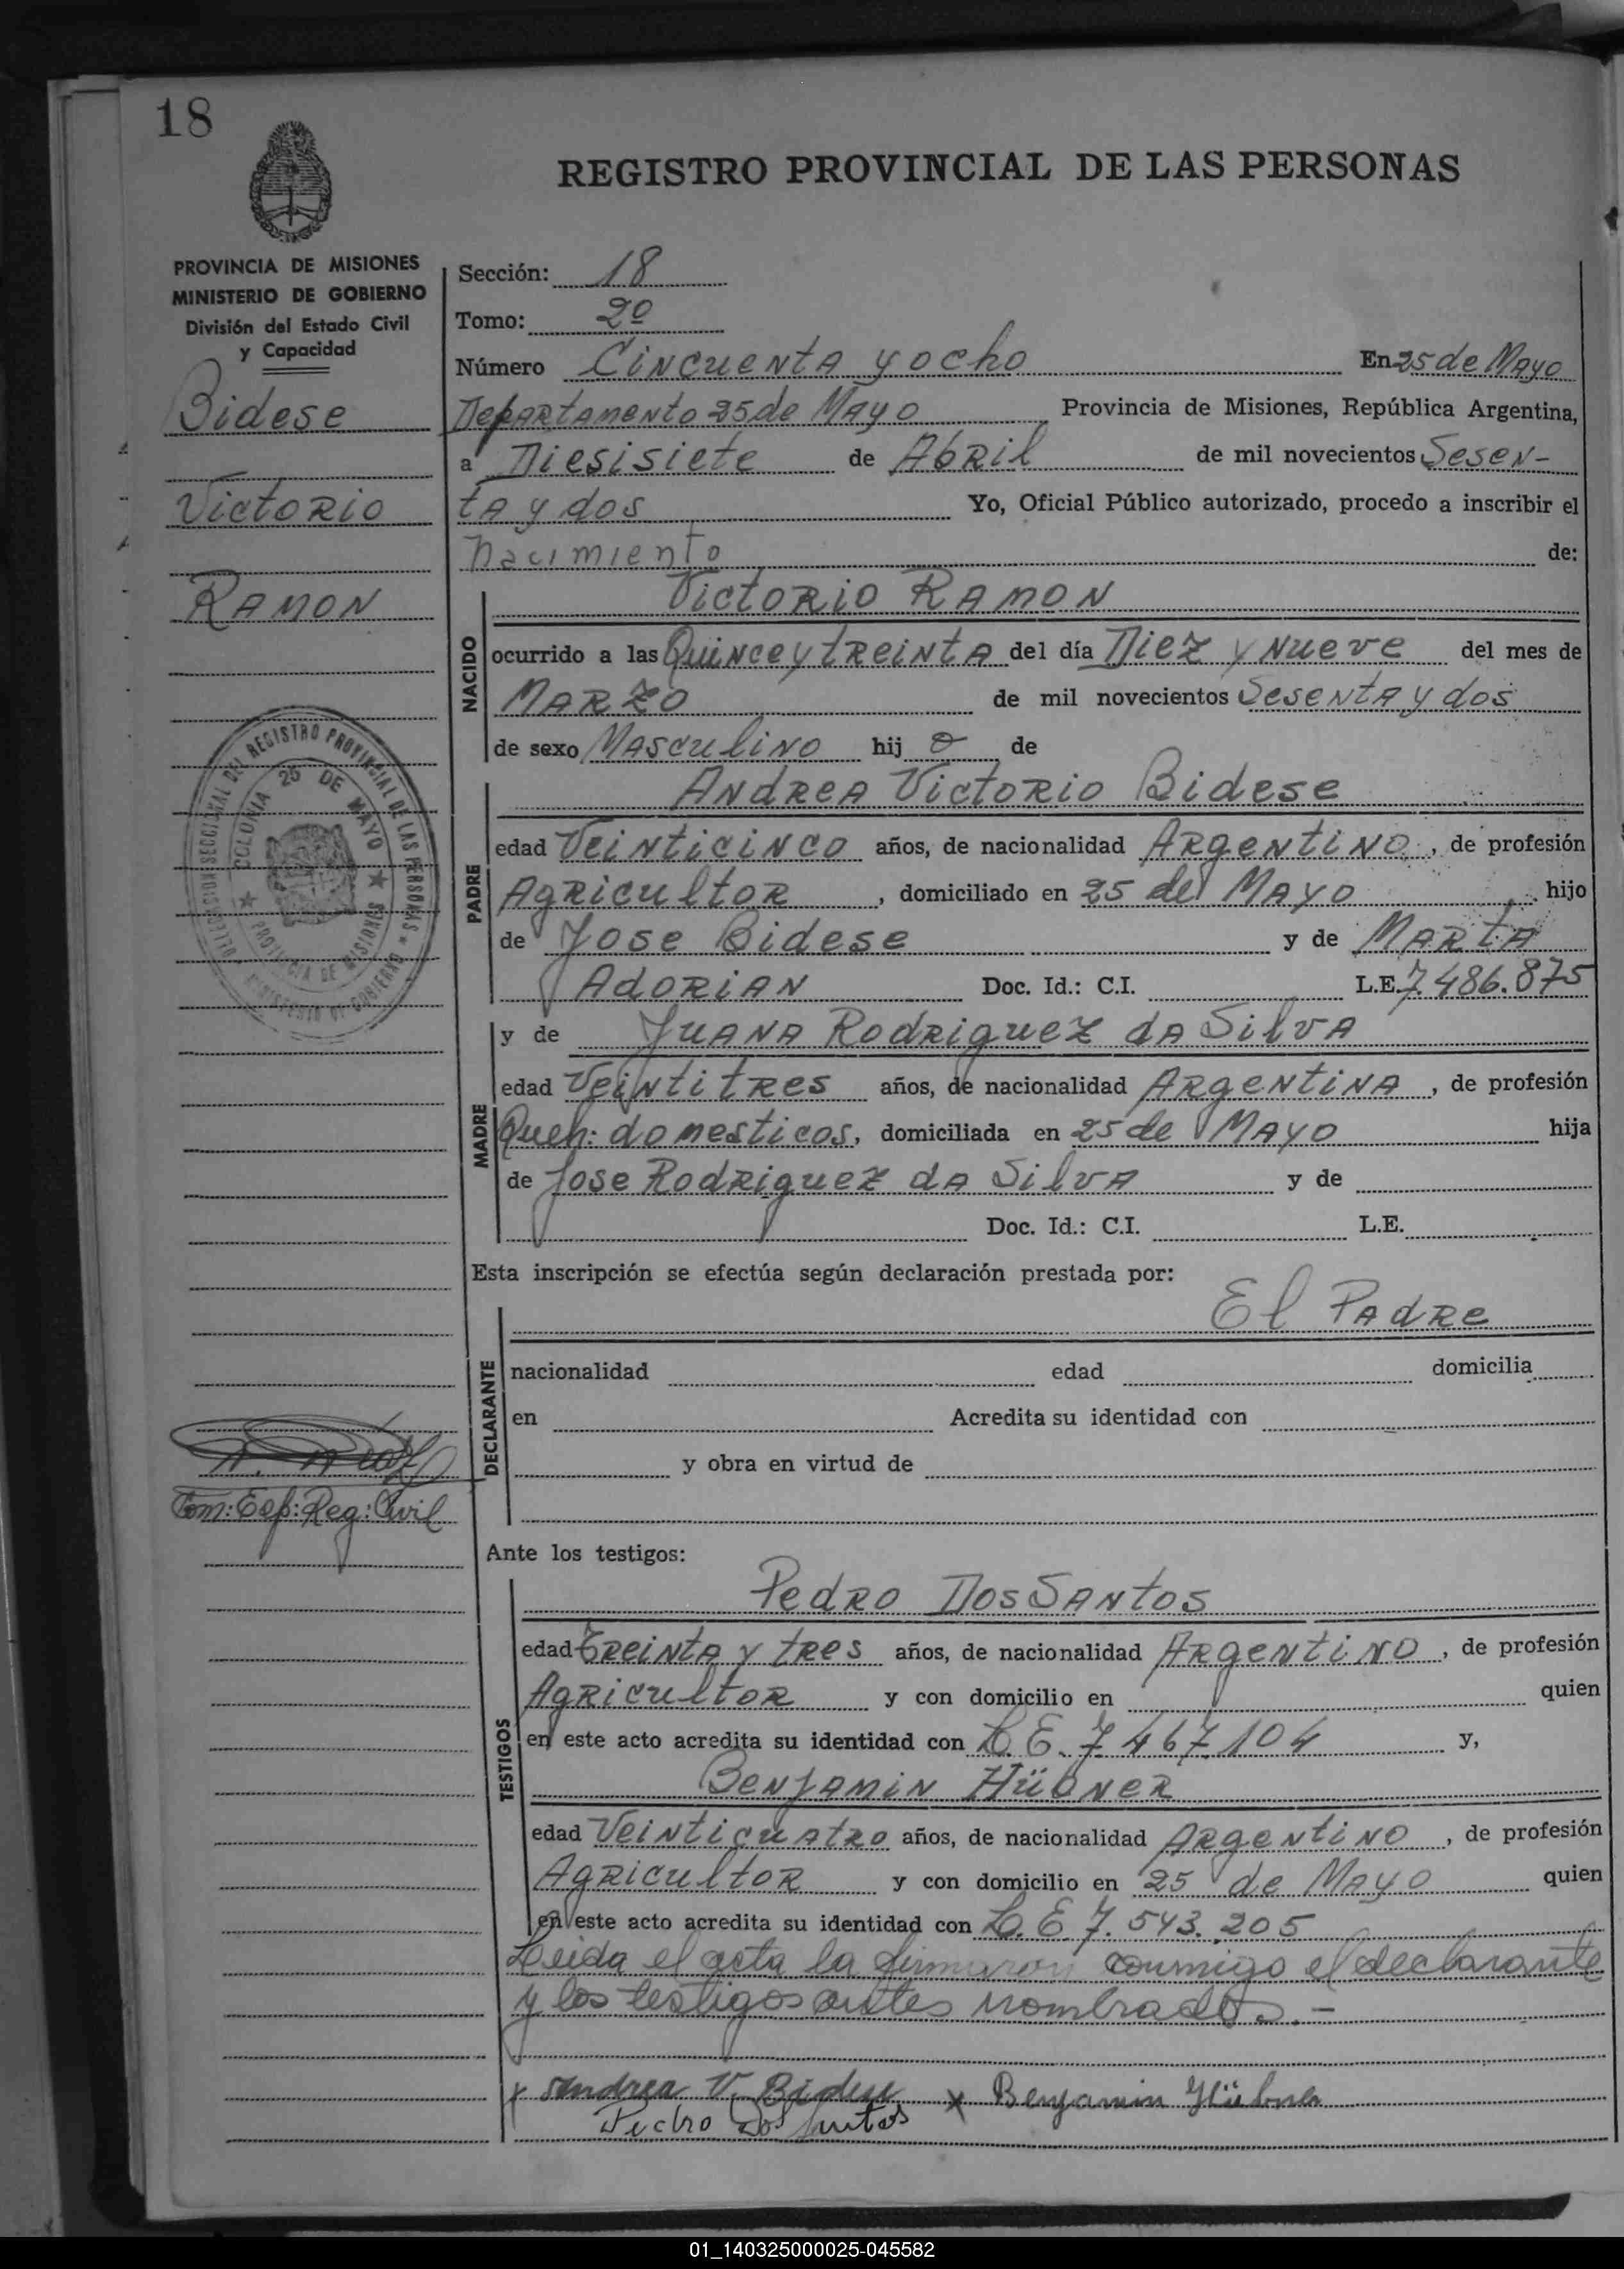 18
REGISTRO PROVINCIAL DE LAS PERSONAS
PROVINCIA DE MISIONES
MINISTERIO DE GOBIERNO
División del Estado Civil
y Capacidad
Bidese
Victorio
Ramon
Sección: 18
Tomo: 2º
Número Cincuenta y ocho En 25 de Mayo
Departamento 25 de Mayo Provincia de Misiones, República Argentina,
a Diesisiete de Abril de mil novecientos Sesen-
ta y dos Yo, Oficial Público autorizado, procedo a inscribir el
nacimiento de:
NACIDO
Victorio Ramon
ocurrido a las Quince y treinta del día Diez y Nueve del mes de
Marzo de mil novecientos Sesenta y dos
de sexo Masculino hij o de
PADRE
Andrea Victorio Bidese
edad Veinticinco años, de nacionalidad Argentino, de profesión
Agricultor, domiciliado en 25 de Mayo, hijo
de Jose Bidese y de Marta
Adorian Doc. Id.: C.I. L.E. 7.486.875
MADRE
y de Juana Rodriguez da Silva
edad Veintitres años, de nacionalidad Argentina, de profesión
Queh: domesticos, domiciliada en 25 de Mayo hija
de Jose Rodriguez da Silva y de
Doc. Id.: C.I. L.E.
Esta inscripción se efectúa según declaración prestada por:
El Padre
DECLARANTE
nacionalidad edad domicilia
en Acredita su identidad con
y obra en virtud de
Com: Esp: Reg: Civil
Ante los testigos:
TESTIGOS
Pedro Dos Santos
edad Treinta y tres años, de nacionalidad Argentino, de profesión
Agricultor y con domicilio en quien
en este acto acredita su identidad con L.E. 7.467.104 y,
Benjamin Hübner
edad Veinticuatro años, de nacionalidad Argentino, de profesión
Agricultor y con domicilio en 25 de Mayo quien
en este acto acredita su identidad con L.E. 7.543.205
Leida el acta la firmaron conmigo el declarante
y los testigos antes nombrados.-
x Andrea V. Bidese x Benjamin Hübner
Pedro Dos Santos
COLONIA 25 DE MAYO
PROVINCIA DE MISIONES
01_140325000025-045582